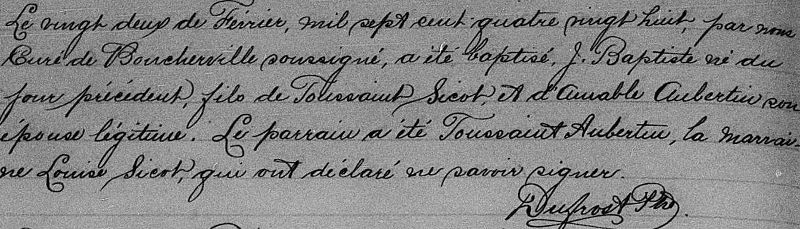 Le vingt deux de Février, mil sept cent quatre vingt huit, par nous
Curé de Boucherville soussigné, a été baptisé, J. Baptiste né du
jour précédent, fils de Toussaint Sicot, et d'Amable Aubertin son
épouse légitime. Le parrain a été Toussaint Aubertin, la marrai-
ne Louise Sicot, qui ont déclaré ne savoir signer.
Dufrost Ptre.